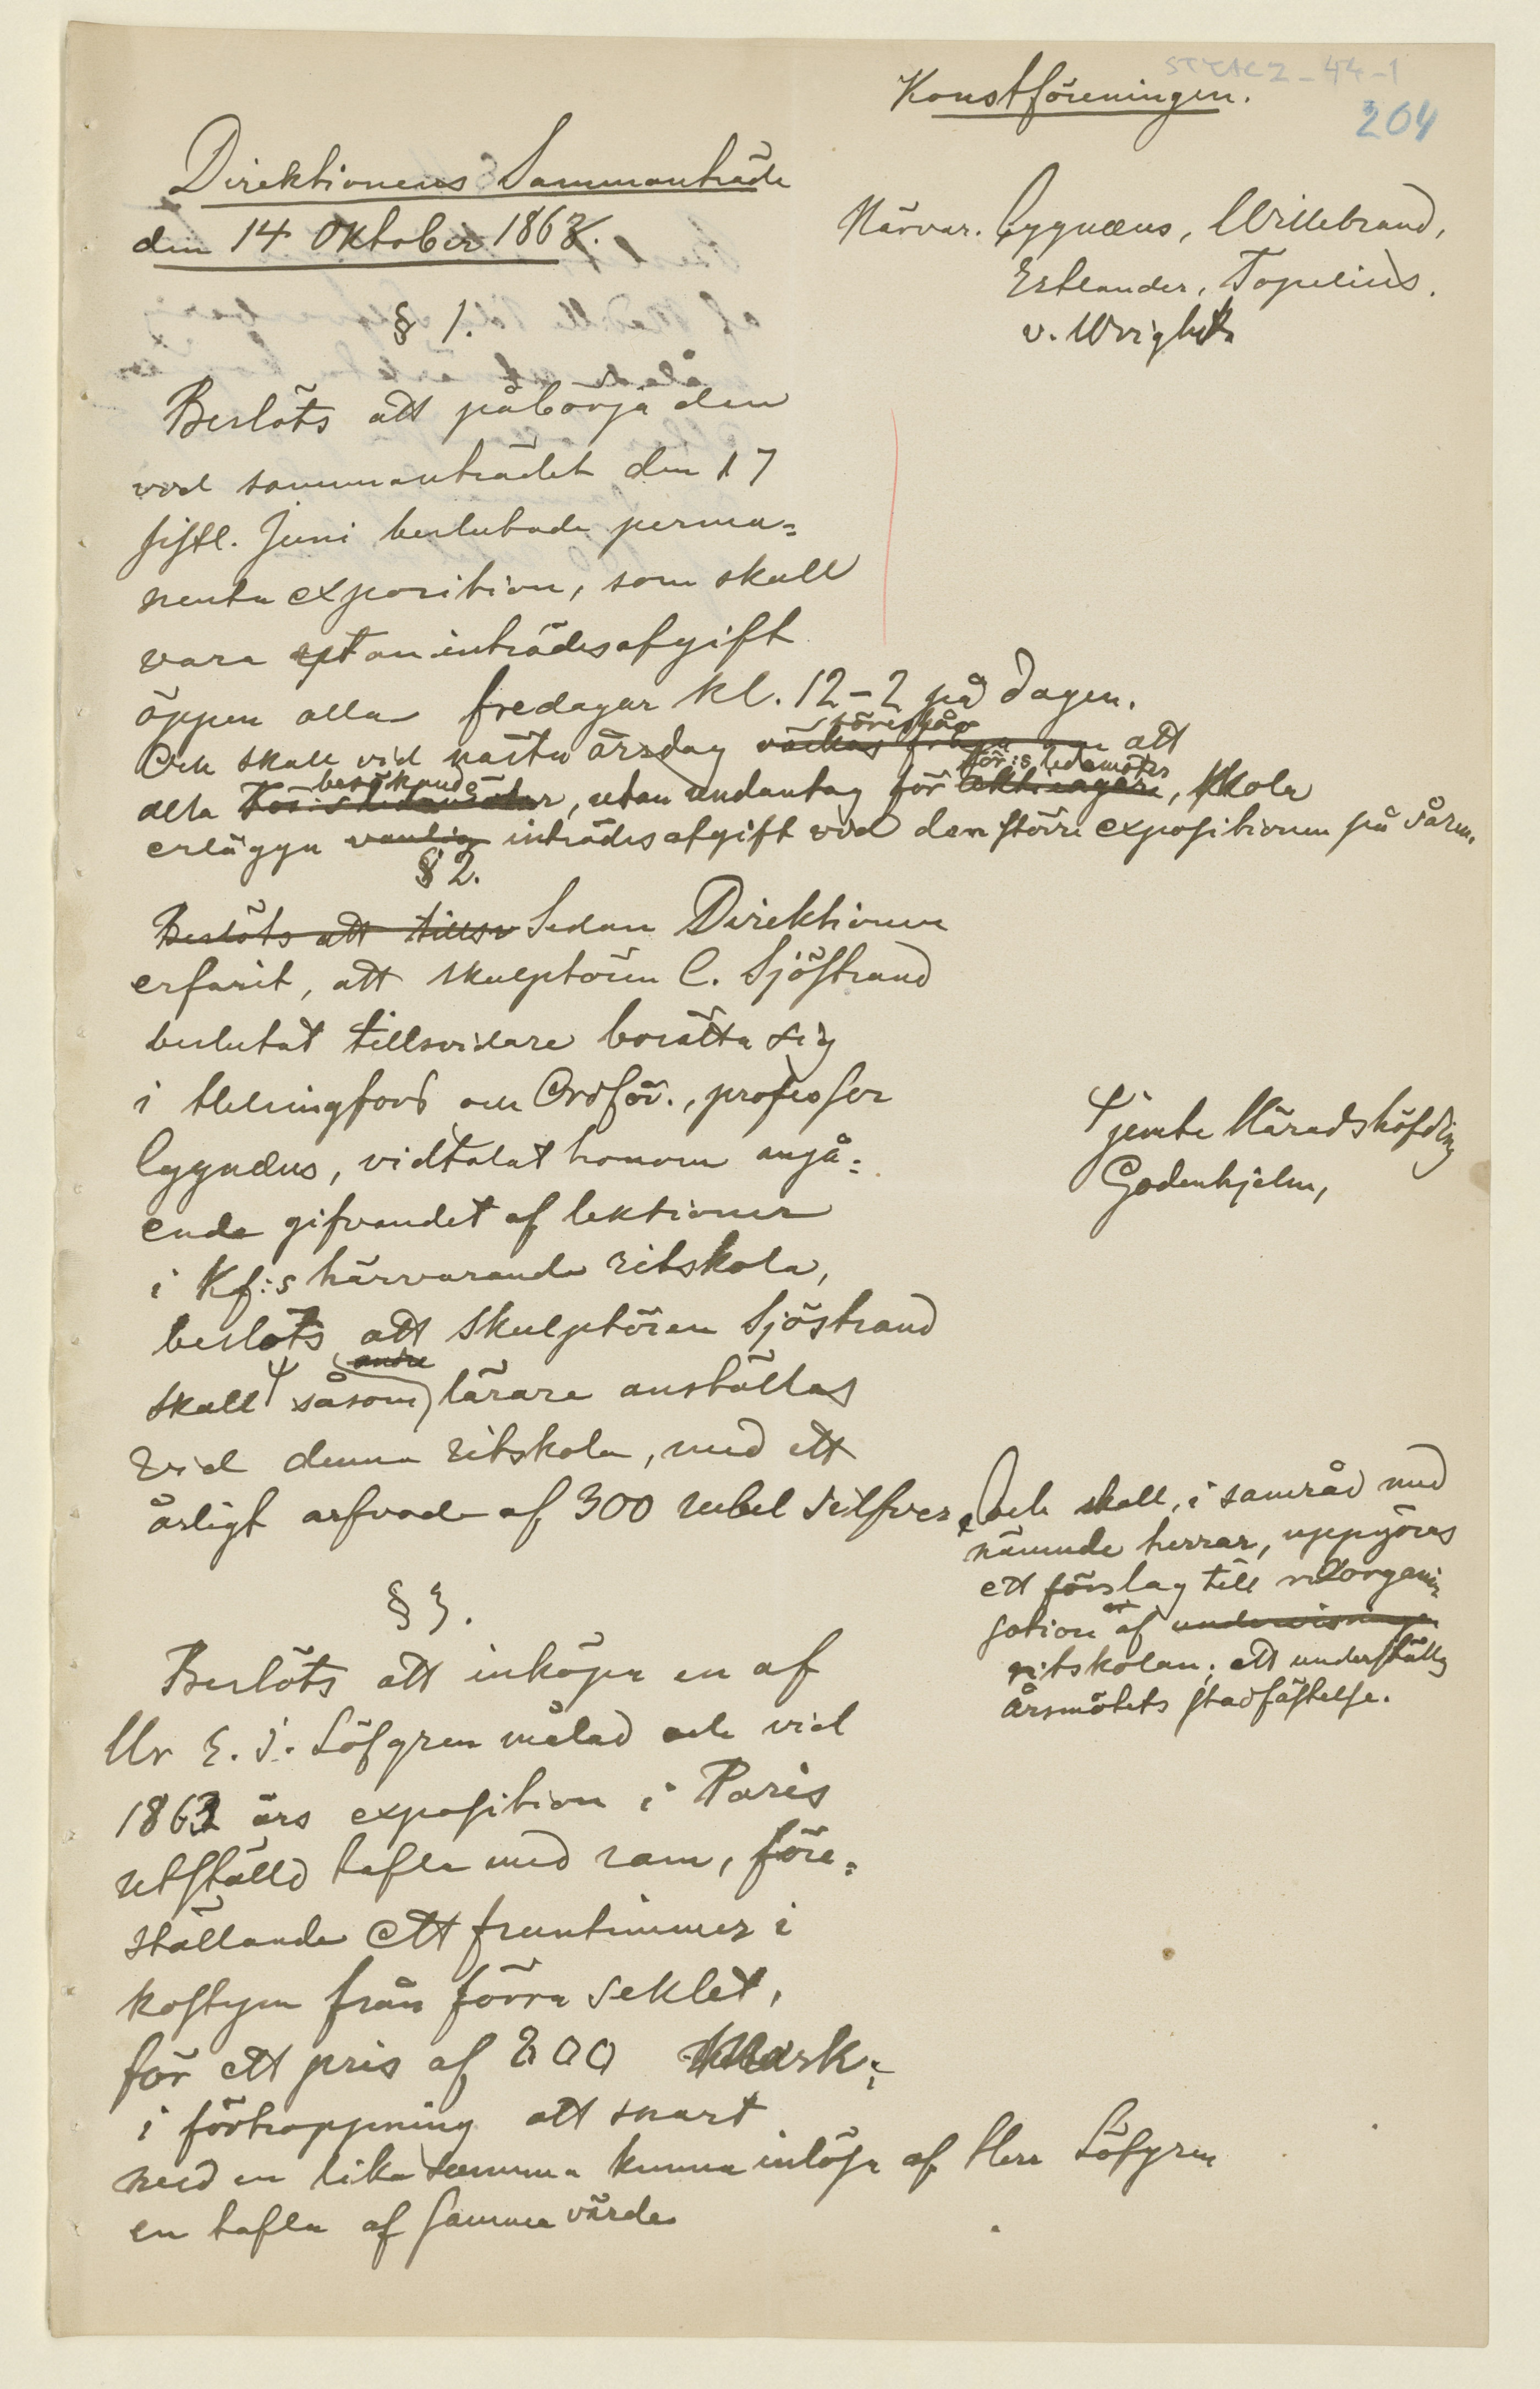 Konstföreningen.
204
Direktionens Sammanträde
den 14 Oktober 1863.
Närvar. Cygnæus, Willebrand,
Estlander, Topelius.
v. Wright
§ 1.
Beslöts att påbörja den
vid sammanträdet den 17
sistl. Juni beslutade perma=
nenta exposition, som skall
vara utan inträdesafgift
öppen alla fredagar kl. 12–2 på dagen.
Och skall vid nästa årsdag föreslås att
alla besökande, utan undantag för För:s ledamöter, skola
erlägga vanlig inträdesafgift vid den större expositionen på våren.
§ 2.
Beslöts att tillsv Sedan Direktionen
erfarit, att skulptören C. Sjöstrand
beslutat tillsvidare bosätta sig
i Helsingfors och Ordför., professor
Cygnæus, vidtalat honom angå=
ende gifvandet af lektioner
i Kf:s härvarande ritskola,
beslöts att skulptören Sjöstrand
skall såsom andre lärare anställas
vid denna ritskola, med ett
årligt arfvode af 300 rubel silfver,
jemte Häradshöfding
Godenhjelm,
och skall, i samråd med
nämnde herrar, uppgöras
ett förslag till reorgani=
sation af undervisningen
ritskolan, att underställas
årsmötets stadfästelse.
§ 3.
Beslöts att inköpa en af
Hr E. J. Löfgren målad och vid
1863 års exposition i Paris
utställd tafla med ram, före=
ställande ett fruntimmer i
kostym från förra seklet,
för ett pris af 800 Mark;
i förhoppning att snart
med en lika summa kunna inlösa af Herr Löfgren
en tafla af samma värde.